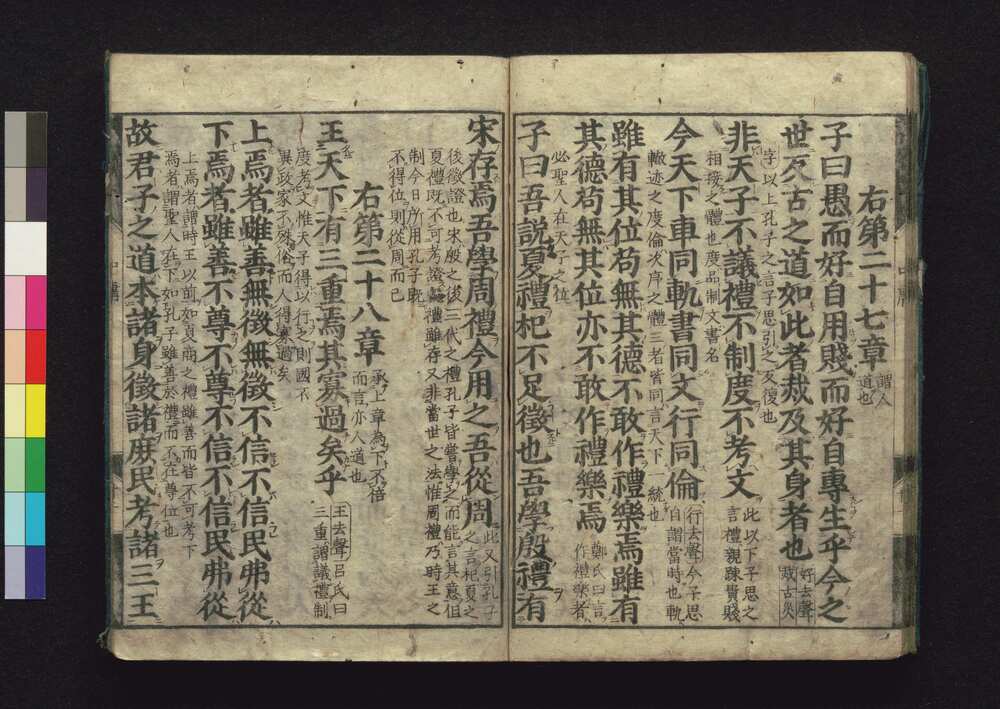 右第二十七章 謂人道也
子曰愚而好自用賤而好自專生乎今之
世反古之道如此者烖及其身者也 好去聲烖古災
字以上孔子之言子思引之反復也
非天子不議禮不制度不考文 此以下子思之言禮親疎貴賤
相接之體也度品制文書名
今天下車同軌書同文行同倫 行去聲今子思自謂當時也軌
轍迹之度倫次序之體三者皆同言天下一統也
雖有其位苟無其德不敢作禮樂焉雖有
其德苟無其位亦不敢作禮樂焉 鄭氏曰言作禮樂者
必聖人在天子之位
子曰吾說夏禮杞不足徵也吾學殷禮有
宋存焉吾學周禮今用之吾從周 此又引孔子之言杞夏之
後徵證也宋殷之後三代之禮孔子皆嘗學之而能言其意但
夏禮既不可考證殷禮雖存又非當世之法惟周禮乃時王之
制今日所用孔子既不得位則從周而已
右第二十八章 承上章為下不倍而言亦人道也
王天下有三重焉其寡過矣乎 王去聲呂氏曰三重謂議禮制
度考文惟天子得以行之則國不異政家不殊俗而人得寡過矣
上焉者雖善無徵無徵不信不信民弗從
下焉者雖善不尊不尊不信不信民弗從
上焉者謂時王以前如夏商之禮雖善而皆不可考下
焉者謂聖人在下如孔子雖善於禮而不在尊位也
故君子之道本諸身徵諸庶民考諸三王